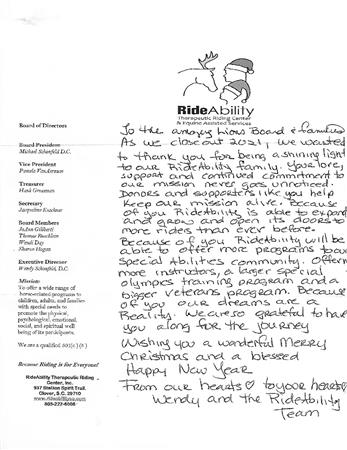 RideAbility
Therapeutic Riding Center
& Equine Assisted Services
Board of Directors
Board President
Michael Schonfeld D.C.
Vice President
Pamela VanAntwerp
Treasurer
Secretary
Board Members
Wendi Day
Sharon Hagen
Executive Director
Wendy Schonfeld, D.C.
Mission:
To offer a wide range of
horse-related programs to
children, adults, and families
with special needs to
promote the physical,
psychological, emotional,
social, and spiritual well
being of its participants.
We are a qualified 501(c)(3)
Because Riding is for Everyone!
RideAbility Therapeutic Riding
Center, Inc.
937 Station Spirit Trail
Clover, S.C. 29710
www.rideabilitysc.com
803-222-6006
To the amazing Lions Board & families
As we close out 2021, we wanted
to thank you for being a shining light
to our RideAbility family. Your love,
support and continued commitment to
our mission never goes unnoticed.
Donors and supporters like you help
keep our mission alive. Because
of you RideAbility is able to expand
and grow and open its doors to
more riders than ever before.
Because of you RideAbility will be
able to offer more programs to our
Special Abilities community. Offer
more instructors, a larger special
olympics training program and a
bigger veterans program. Because
of you our dreams are a
Reality. We are so grateful to have
you along for the journey
Wishing you a wonderful Merry
Christmas and a blessed
Happy New Year
From our hearts ♡ to your hearts
Wendy and the RideAbility
Team